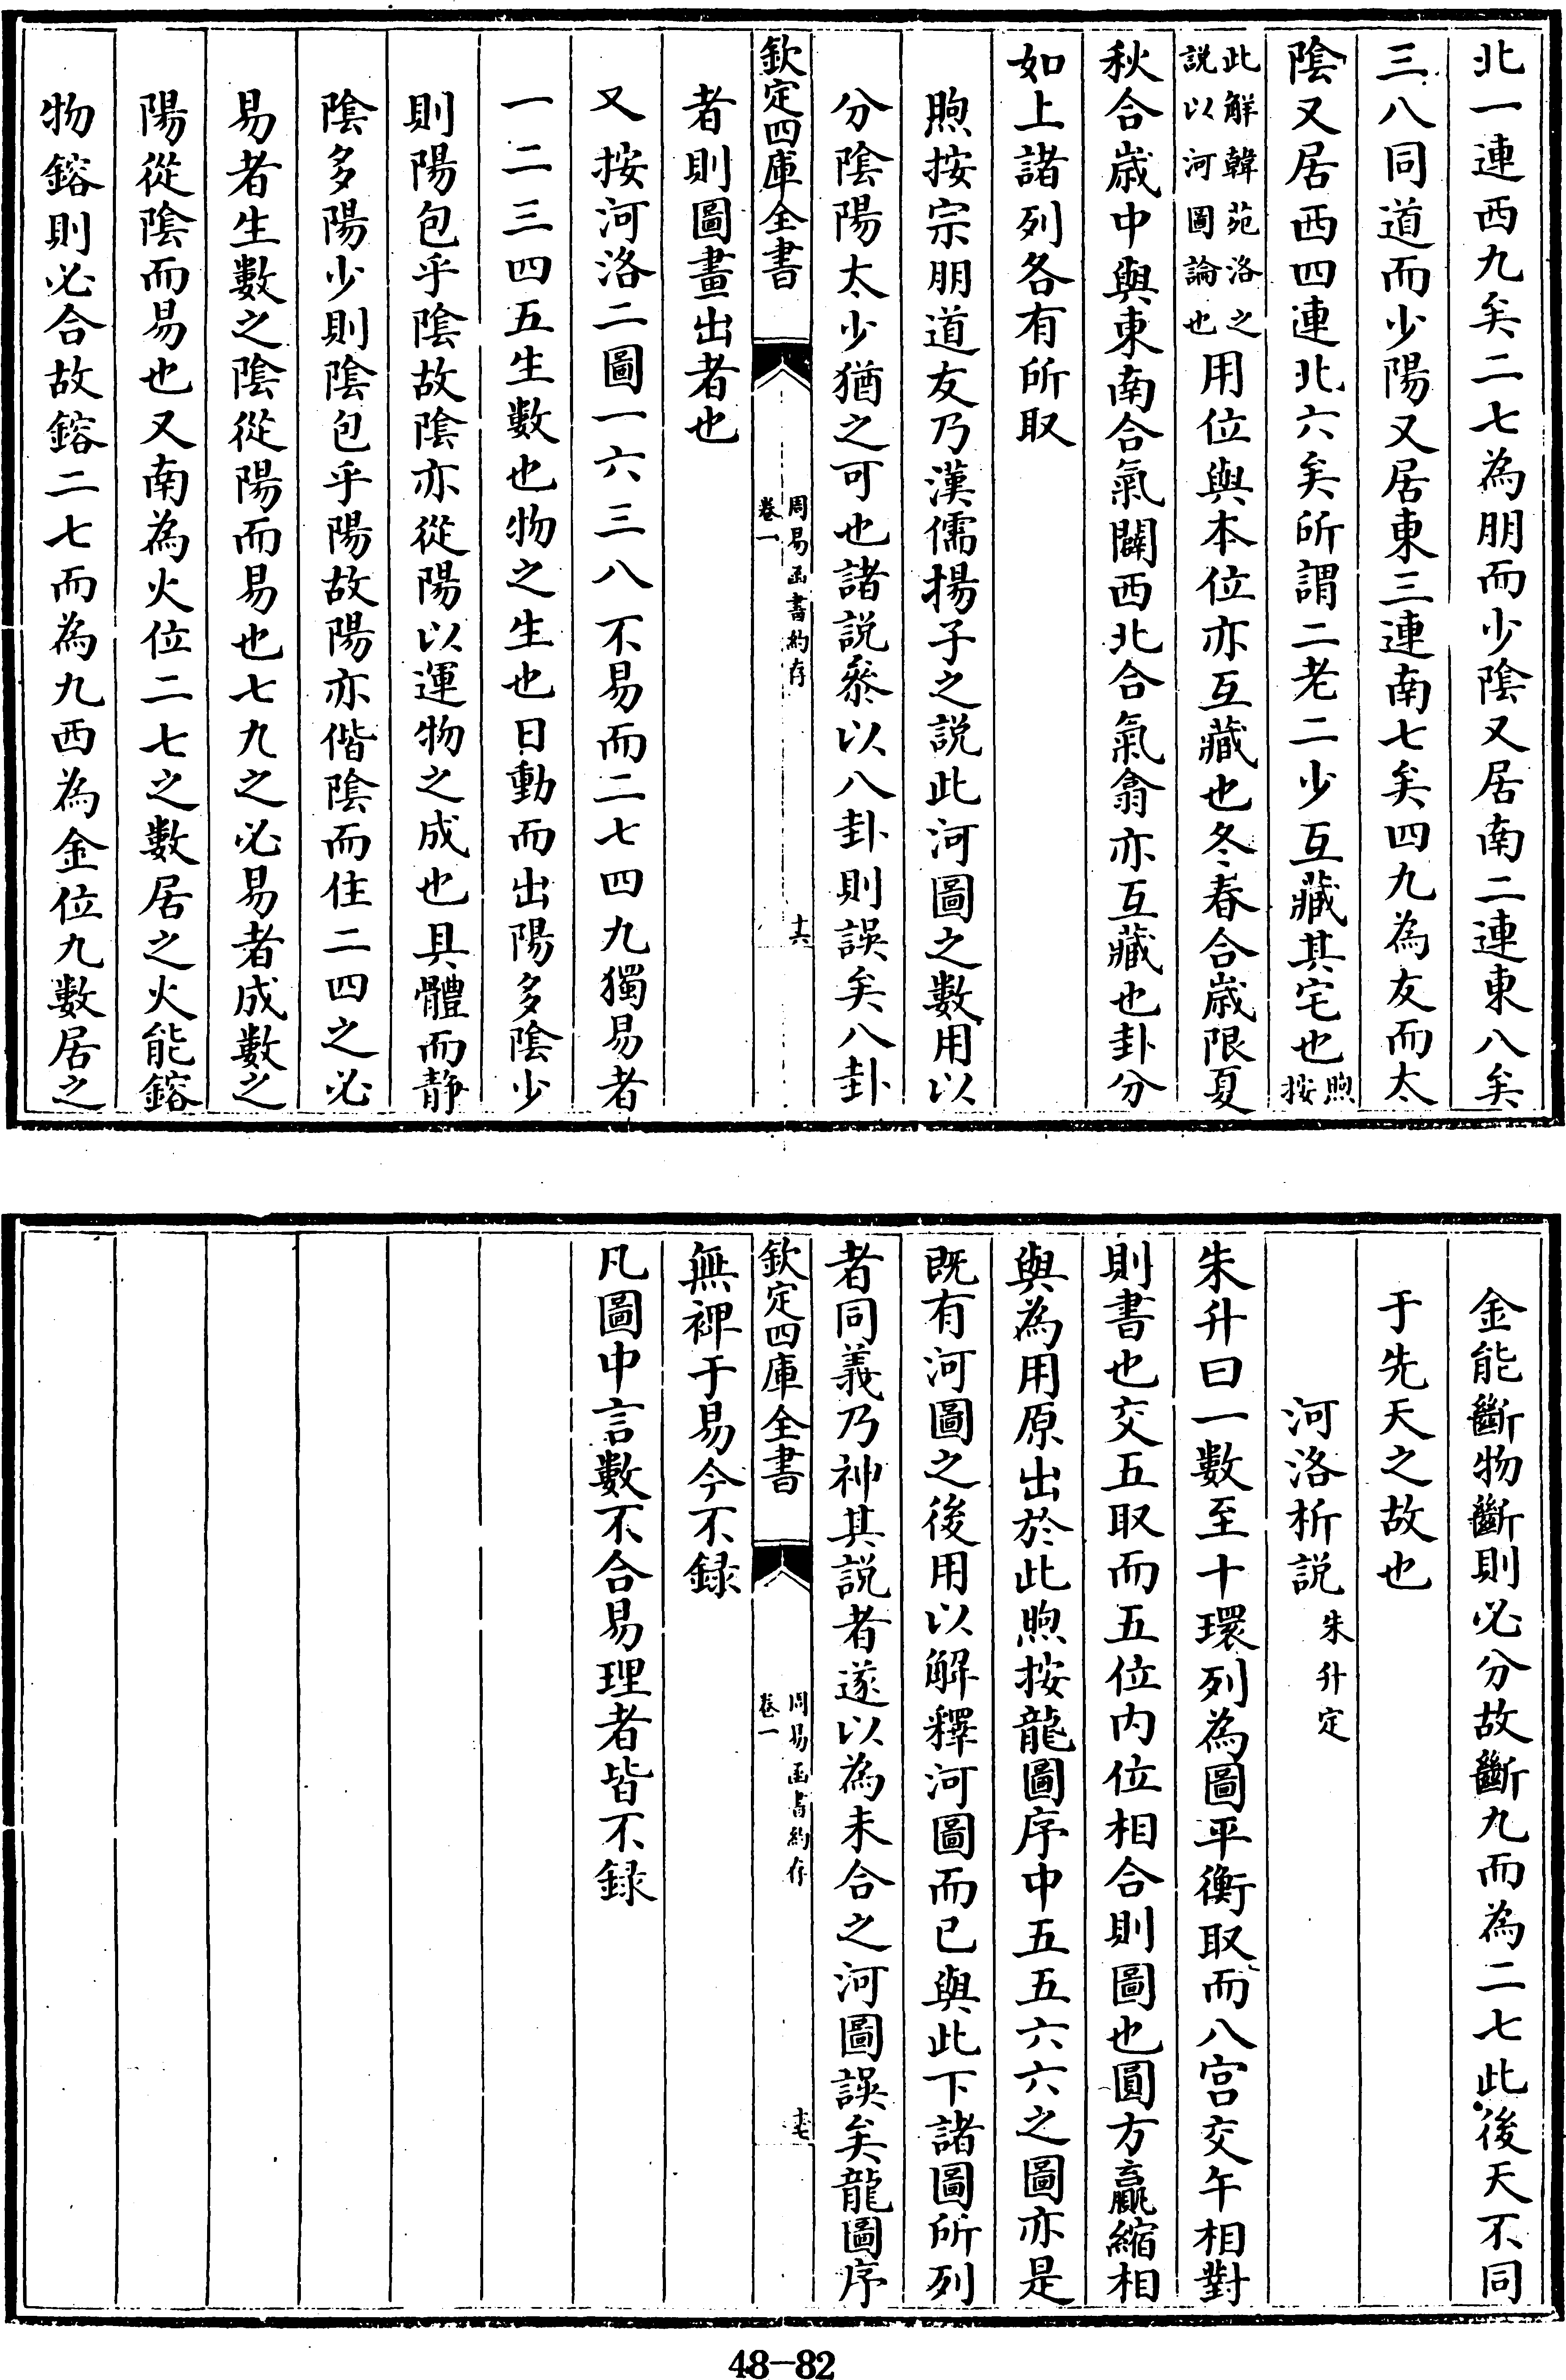 北一連西九矣二七為朋而少陰又居南二連東八矣
三八同道而少陽又居東三連南七矣四九為友而太
陰又居西四連北六矣所謂二老二少互藏其宅也煦按
此解韓苑洛之說以河圖論也用位與本位亦互藏也冬春合歲限夏
秋合歲中與東南合氣闢西北合氣翕亦互藏也卦分
如上諸列各有所取
煦按宗朋道友乃漢儒揚子之說此河圖之數用以
分陰陽太少猶之可也諸說叅以八卦則誤矣八卦
欽定四庫全書
周易函書約存
卷一
十六
者則圖畫出者也
又按河洛二圖一六三八不易而二七四九獨易者
一二三四五生數也物之生也日動而出陽多陰少
則陽包乎陰故陰亦從陽以運物之成也具體而靜
陰多陽少則陰包乎陽故陽亦偕陰而住二四之必
易者生數之陰從陽而易也七九之必易者成數之
陽從陰而易也又南為火位二七之數居之火能鎔
物鎔則必合故鎔二七而為九西為金位九數居之
金能斷物斷則必分故斷九而為二七此後天不同
于先天之故也
河洛析說朱升定
朱升曰一數至十環列為圖平衡取而八宮交午相對
則書也交五取而五位內位相合則圖也圓方贏縮相
與為用原出於此煦按龍圖序中五五六六之圖亦是
既有河圖之後用以解釋河圖而已與此下諸圖所列
者同義乃神其說者遂以為未合之河圖誤矣龍圖序
欽定四庫全書
周易函書約存
卷一
十七
無裨于易今不録
凡圖中言數不合易理者皆不録
48-82